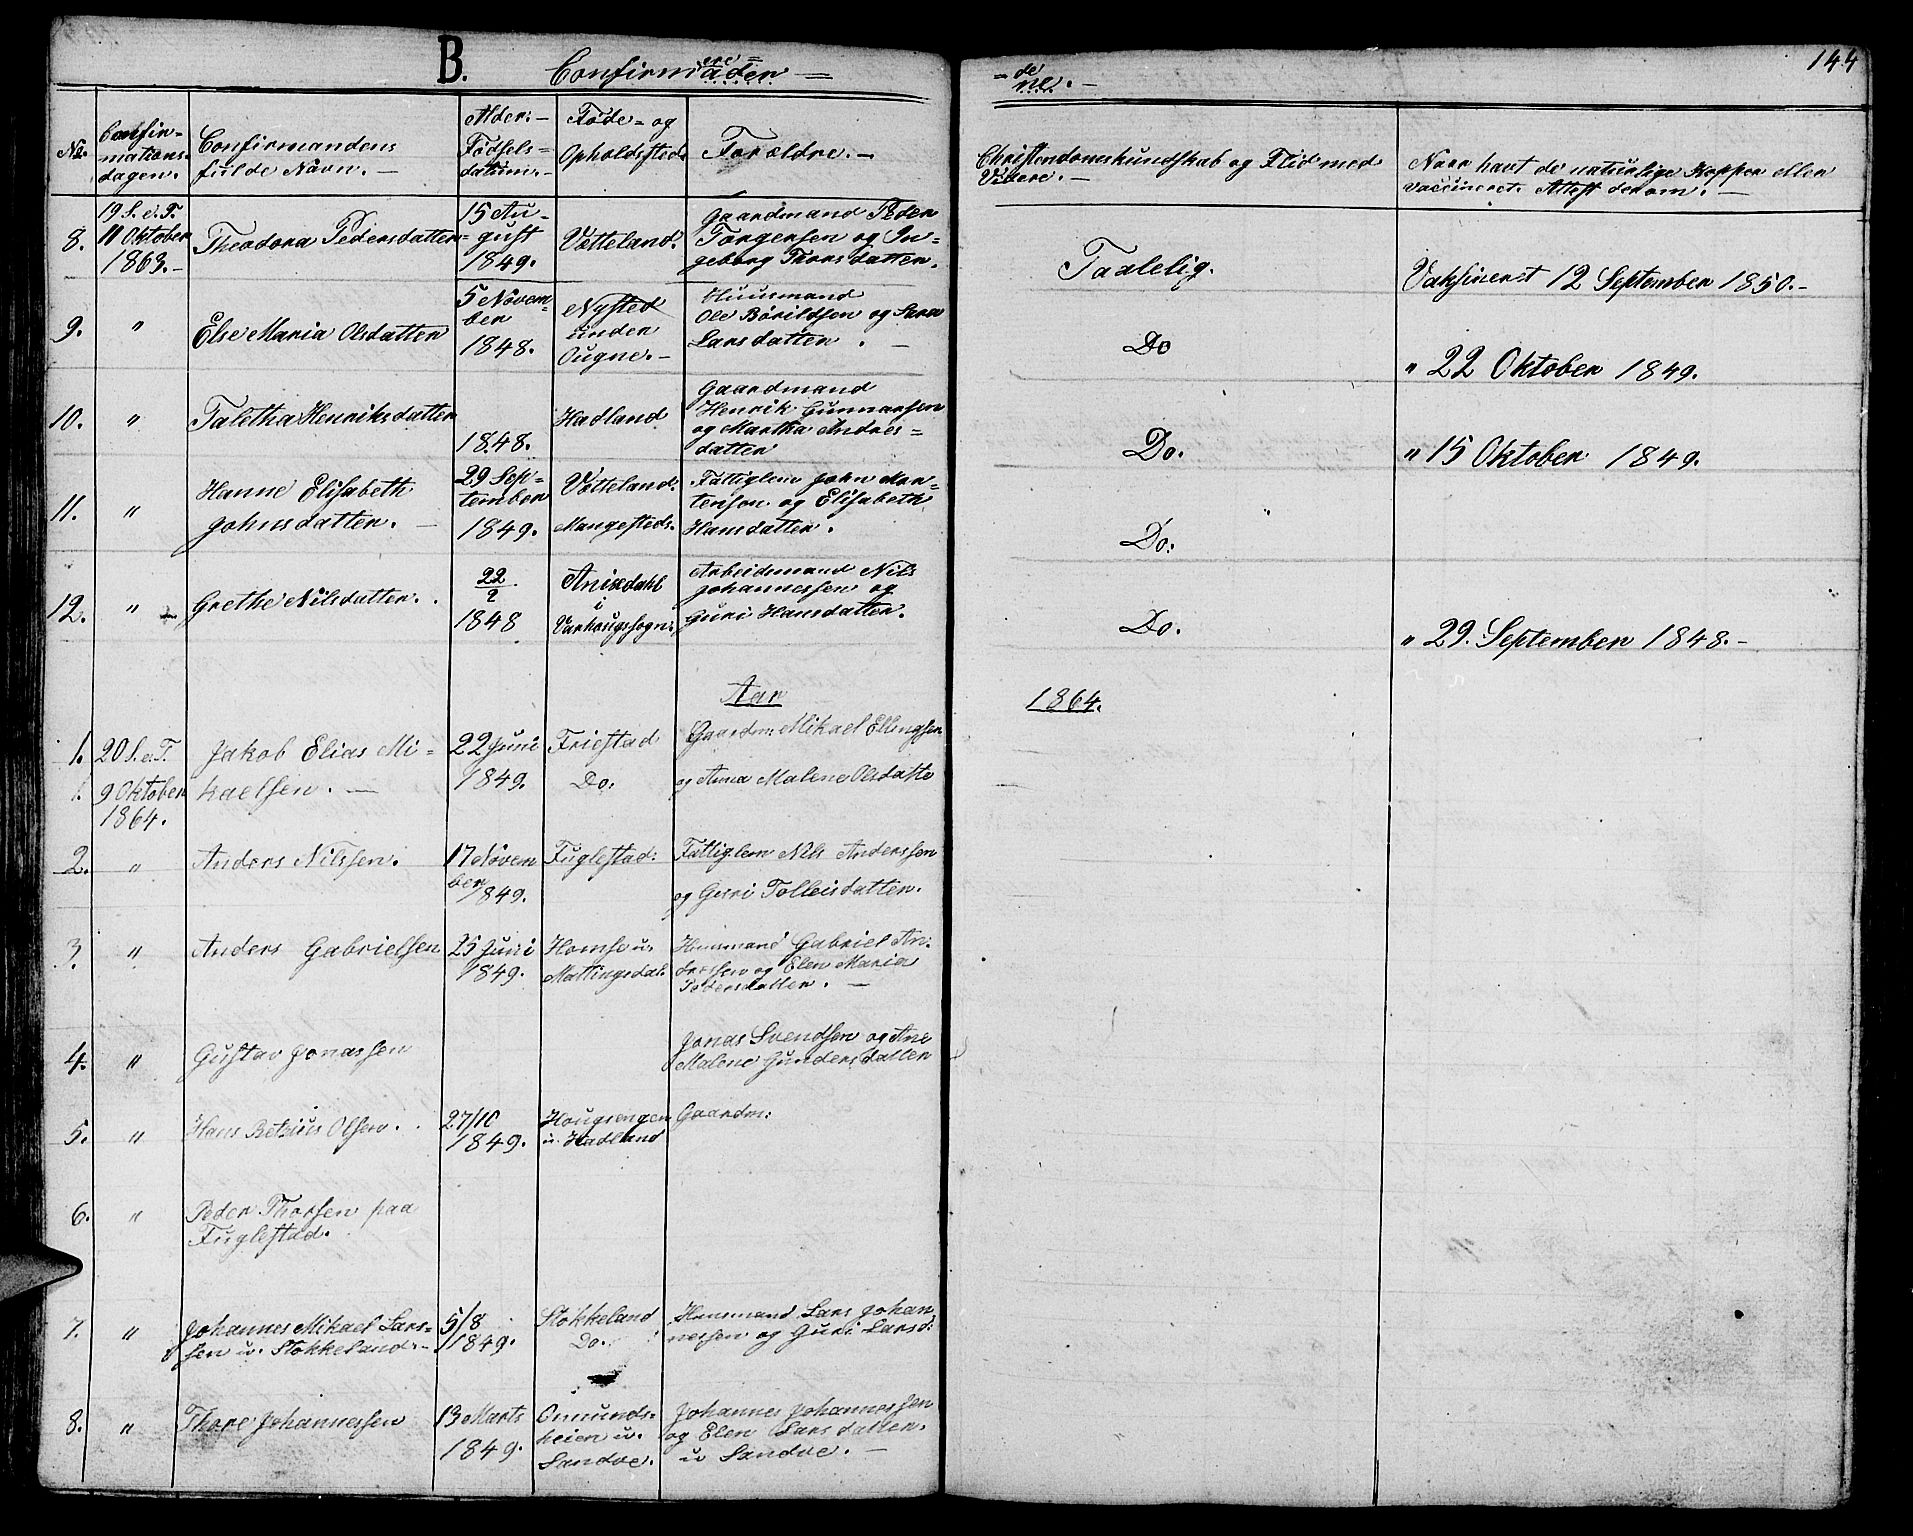 B. Confirmerede
144
No.
Confirmationsdagen.
Confirmandens fulde Navn.
Alder: Fødselsdatum.
Føde- og Opholdssted.
Forældre.
Christendomskundskab og Flid med Videre.
Naar havt de naturlige Kopper eller vaccineret. Attest derom.
8. 19 S.e.T. 11 Oktober 1863. Theodora Pedersdatter 15 August 1849. Vetteland. Gaardmand Peder Torgersen og Ingeborg Thorsdatter. Taalelig. Vaksineret 12 September 1850.
9. " Else Maria Olsdatter 5 November 1848. Nysted under Ougne. Huusmand Ole Bårildsen og Sara Larsdatter. Do " 22 Oktober 1849.
10. " Taletha Henriksdatter 1848. Hadland Gaardmand Henrik Gunnarsen og Martha Andresdatter Do. " 15 Oktober 1849.
11. " Hanne Elisabeth Johnsdatter. 29 September 1849. Vetteland: Mangesteds. Fattiglem John Mortensen og Elisabeth Hansdatter. Do.
12. " Grethe Nilsdatter. 22/2 1848 Anisdahl i Varhougssogn: Arbeidsmand Nils Johannessen og Guri Hansdatter. Do. " 29. September 1848.
Aar 1864.
1. 20 S.e.T. 9 Oktober 1864. Jakob Elias Mikaelsen. 22 Juni 1849. Friestad Do. Gaardm: Mikael Ellingsen og Anna Malene Olsdatte
2. " Anders Nilssen. 17 November 1849. Fuglestad: Fattiglem Nils Anderssen og Guri Tolleisdatter.
3. " Anders Gabrielsen 25 Juni 1849. Homse u. Mattingsdal. Huusmand Gabriel Andersen og Elen Maria Pedersdatter.
4. " Gustav Jonassen Jonas Svendsen og Ane Malene Gundersdatter
5. " Hans Betzius Olsen. 27/10 1849. Hougsengen u. Hadland Gaardm:
6. " Peder Thorsen paa Fuglestad.
7. " Johannes Mikael Larssen u. Stokkeland. 5/8 1849. Stokkeland Do. Huusmand Lars Johannessen og Guri Larsd:
8. " Thore Johannessen 13 Marts 1849. Omundsheien u. Sandve. Johannes Johannessen og Elen Larsdatter. u Sandve.